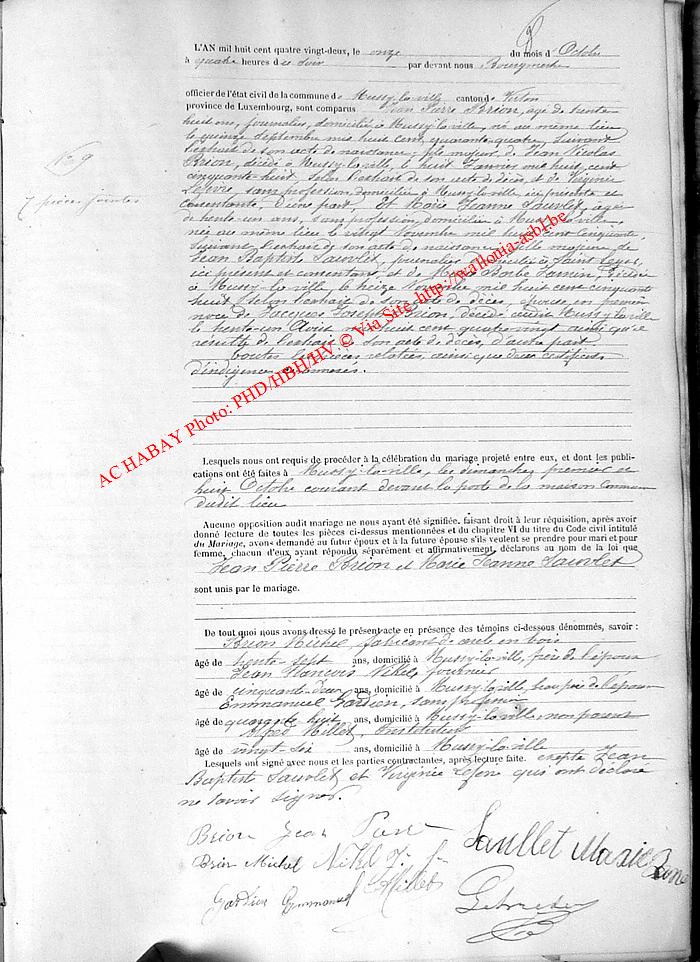 L'AN mil huit cent quatre vingt-deux, le onze du mois d'Octobre
à quatre heures du soir par devant nous Bourgmestre
officier de l'état civil de la commune de Mussy-la-ville canton de Virton
province de Luxembourg, sont comparus Jean Pierre Brion, âgé de trente
huit ans, journalier, domicilié à Mussy-la-ville, né au même lieu
le quinze septembre mil huit cent quarante-quatre, suivant
l'extrait de son acte de naissance, fils majeur de Jean Nicolas
Brion, décédé à Mussy-la-ville, le huit Janvier mil huit cent
cinquante-huit selon l'extrait de son acte de décès, et de Virginie
Lefèvre, sans profession, domiciliée à Mussy-la-ville ici présente et
consentante, d'une part, Et Marie Jeanne Sauvlet, âgée
de trente un ans, sans profession, domiciliée à Mussy-la-ville,
née au même lieu le vingt Novembre mil huit cent cinquante
suivant l'extrait de son acte de naissance, fille majeure de
Jean Baptiste Sauvlet, journalier, domicilié à Saint Léger,
ici présent et consentant, et de Marie Barbe Jamin, décédée
à Mussy-la-ville le treize mil huit cent cinquante
huit selon l'extrait de son acte de décès, épouse en première
noce de Jacques Joseph Brion, décédé audit Mussy-la-ville
le trente-un Août mil huit cent quatre-vingt ainsi qu'il
résulte de l'extrait de son acte de décès, d'autre part
toutes les pièces relatées, ainsi que deux certificats
d'indigence annexés.
N° 9
7 pièces jointes
AC HABAY Photo: PHD/HBH/HV © Via Site http://wallonia-asbl.be
Lesquels nous ont requis de procéder à la célébration du mariage projeté entre eux, et dont les publi-
cations ont été faites à Mussy-la-ville, les dimanches premier et
huit Octobre courant devant la porte de la maison Commune
dudit lieu
Aucune opposition audit mariage ne nous ayant été signifiée. faisant droit à leur réquisition, après avoir
donné lecture de toutes les pièces ci-dessus mentionnées et du chapitre VI du titre du Code civil intitulé
du Mariage, avons demandé au futur époux et à la future épouse s'ils veulent se prendre pour mari et pour
femme, chacun d'eux ayant répondu séparément et affirmativement, déclarons au nom de la loi que
Jean Pierre Brion et Marie Jeanne Sauvlet
sont unis par le mariage.
De tout quoi nous avons dressé le présent acte en présence des témoins ci-dessous dénommés, savoir :
Brion Michel, fabricant de en bois
âgé de trente-sept ans, domicilié à Mussy-la-ville, frère de l'époux
Jean François Nikel, journalier
âgé de cinquante-deux ans, domicilié à Mussy-la-ville, beau père de l'époux
Emmanuel Gardien, sans profession
âgé de quarante-huit ans, domicilié à Mussy-la-ville, non parent
Alfred Millet, Instituteur
âgé de vingt-six ans, domicilié à Mussy-la-ville
Lesquels ont signé avec nous et les parties contractantes, après lecture faite. excepté Jean
Baptiste Sauvlet et Virginie Lefèvre qui ont déclaré
ne savoir signer.
Brion Jean Saullet Marie Jeanne
Brion Michel Nikel J. f.
Gardien Emmanuel Millet